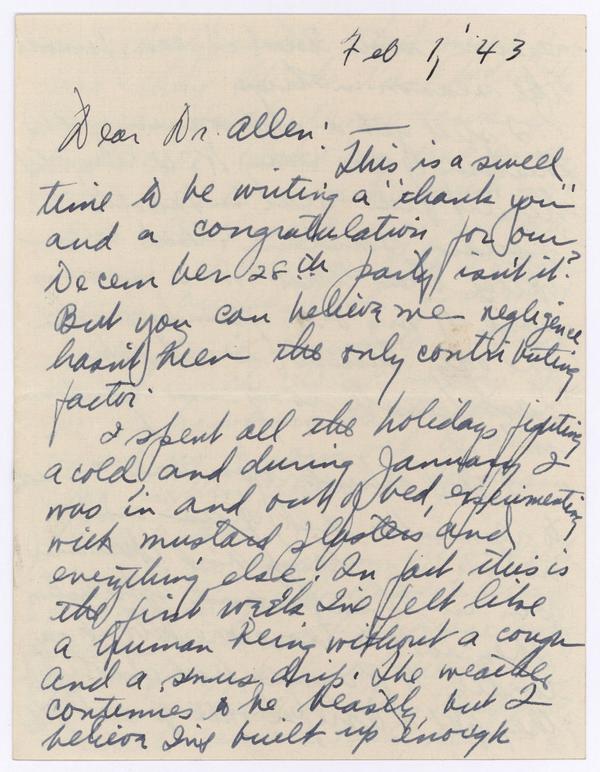 Feb 1, '43
Dear Dr. Allen: —
This is a swell
time to be writing a "thank you"
and a congratulation for our
December 28th party isn't it?
But you can believe me negligence
hasn't been the only contributing
factor.
I spent all the holidays fighting
a cold and during January I
was in and out of bed, experimenting
with mustard plasters and
everything else. In fact this is
the first week I've felt like
a human being without a cough
and a sinus drip. The weather
continues to be beastly, but I
believe I've built up enough